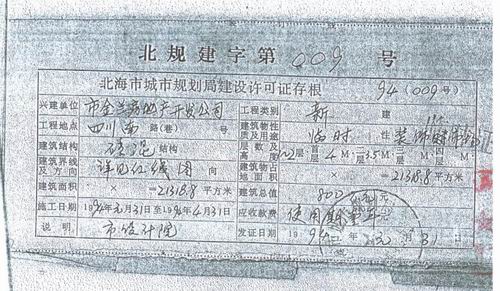 北规建字第 009 号
北海市城市规划局建设许可证存根 94(009号)
兴建单位 市金兰房地产开发公司 工程类别 新 建
工程地点 四川南 路(巷) 号 建筑物性质及用途 临时
建筑结构 砖混 结构 层数及高度 1~2层 首层 4 M 二层 3.5 M 层 M
建筑界线及方向 详见红线图 向 建筑物占地面积 × =21318.8 平方米
建筑面积 × =21318.8 平方米 建筑总值 800 元
施工日期 1994年元月31日至1996年4月31日 应收款费 使用期 年
说明 市设计院 发证日期 1994年元月31日